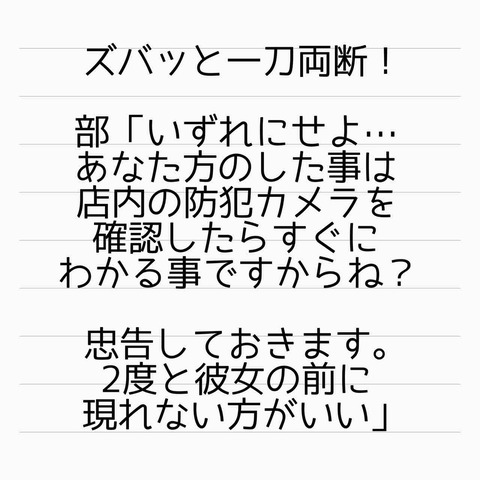 ズバッと一刀両断！
部「いずれにせよ…
あなた方のした事は
店内の防犯カメラを
確認したらすぐに
わかる事ですからね？
忠告しておきます。
2度と彼女の前に
現れない方がいい」